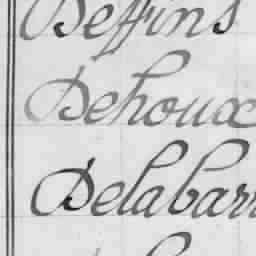 Deffins
Dehoux
Delabarr